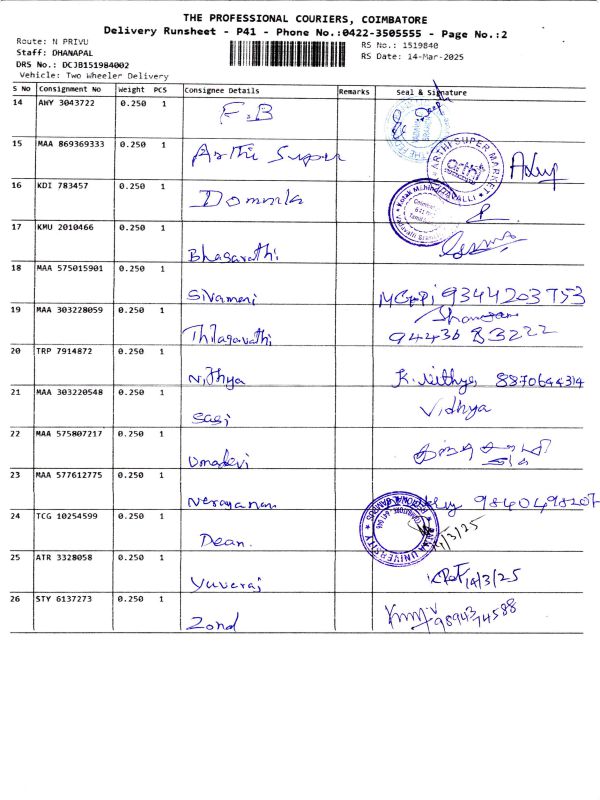 THE PROFESSIONAL COURIERS, COIMBATORE
Delivery Runsheet - P41 - Phone No.:0422-3505555 - Page No.:2
Route: N PRIVU
RS No.: 1519840
Staff: DHANAPAL
RS Date: 14-Mar-2025
DRS No.: DCJB151984002
Vehicle: Two Wheeler Delivery
S No Consignment No Weight PCS Consignee Details Remarks Seal & Signature
14 AWY 3043722 0.250 1 F.B
15 MAA 869369333 0.250 1 Arthi Super
ARTHI SUPER MARKET
16 KDI 783457 0.250 1
Kotak Mahindra
17 KMU 2010466 0.250 1 Bhagarathi
18 MAA 575015901 0.250 1 Sivamani 9344203753
19 MAA 303228059 0.250 1 Thilagavathi 94436 83222
20 TRP 7914872 0.250 1 Nithya K. Nithya 8870644314
21 MAA 303220548 0.250 1 Sasi Vidhya
22 MAA 575807217 0.250 1 Umadevi
23 MAA 577612775 0.250 1 Narayanan 9840498207
24 TCG 10254599 0.250 1 Dean
UNIVERSITY
25 ATR 3328058 0.250 1 Yuvaraj 14/3/25
26 STY 6137273 0.250 1 Zond 9894374588